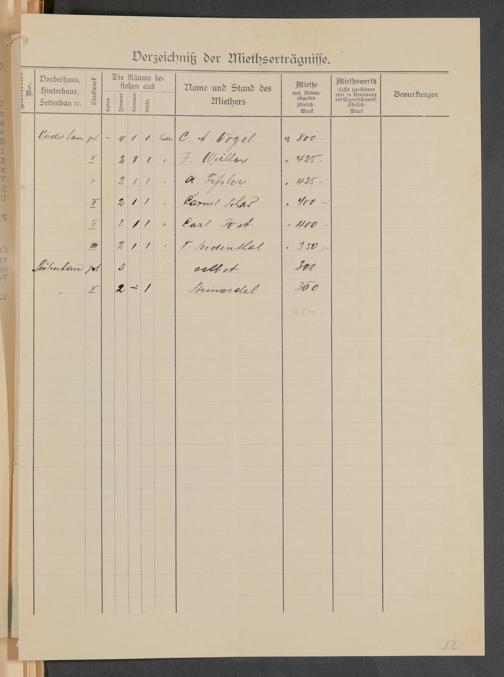 Verzeichniß der Miethserträgnisse.
No.
Vorderhaus, Hinterhaus, Seitenbau ꝛc.
Stockwerk
Die Räume bestehen aus
Laden
Zimmer
Kammer
Küche
Name und Stand des Miethers
Miethe incl. Nebenabgaben jährlich: Mark
Miethswerth (falls leerstehend oder in Benutzung des Eigenthümers) jährlich: Mark
Bemerkungen
Vorderhaus pt – 4 1 1 C. A. Vogel 800.–
I 2 2 1 F. Müller 425.–
2 1 1 A. 425.–
II 2 1 1 400 –
II 2 1 1 Carl 400 –
III 2 1 1 F. 350 –
pt 3 selbst 300
I 2 – 1 Steinwedel 300
12